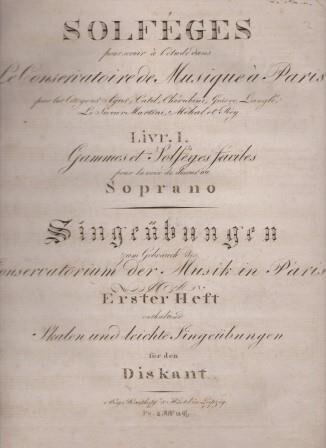 SOLFÉGES
pour servir à l'étude dans
Le Conservatoire de Musique à Paris
par les Citoyens Agus, Catel, Chérubini, Gossec, Langlé,
Le Sueur Martini, Méhul et Rey
Livr. I.
Gammes et Solféges faciles
pour la voix de dessus ou
Soprano
Singeübungen
zum Gebrauch des
Conservatorium der Musik in Paris
Erster Heft
enthaltend
Skalen und leichte Singeübungen
für den
Diskant.
Bey Breitkopf & Härtel in Leipzig.